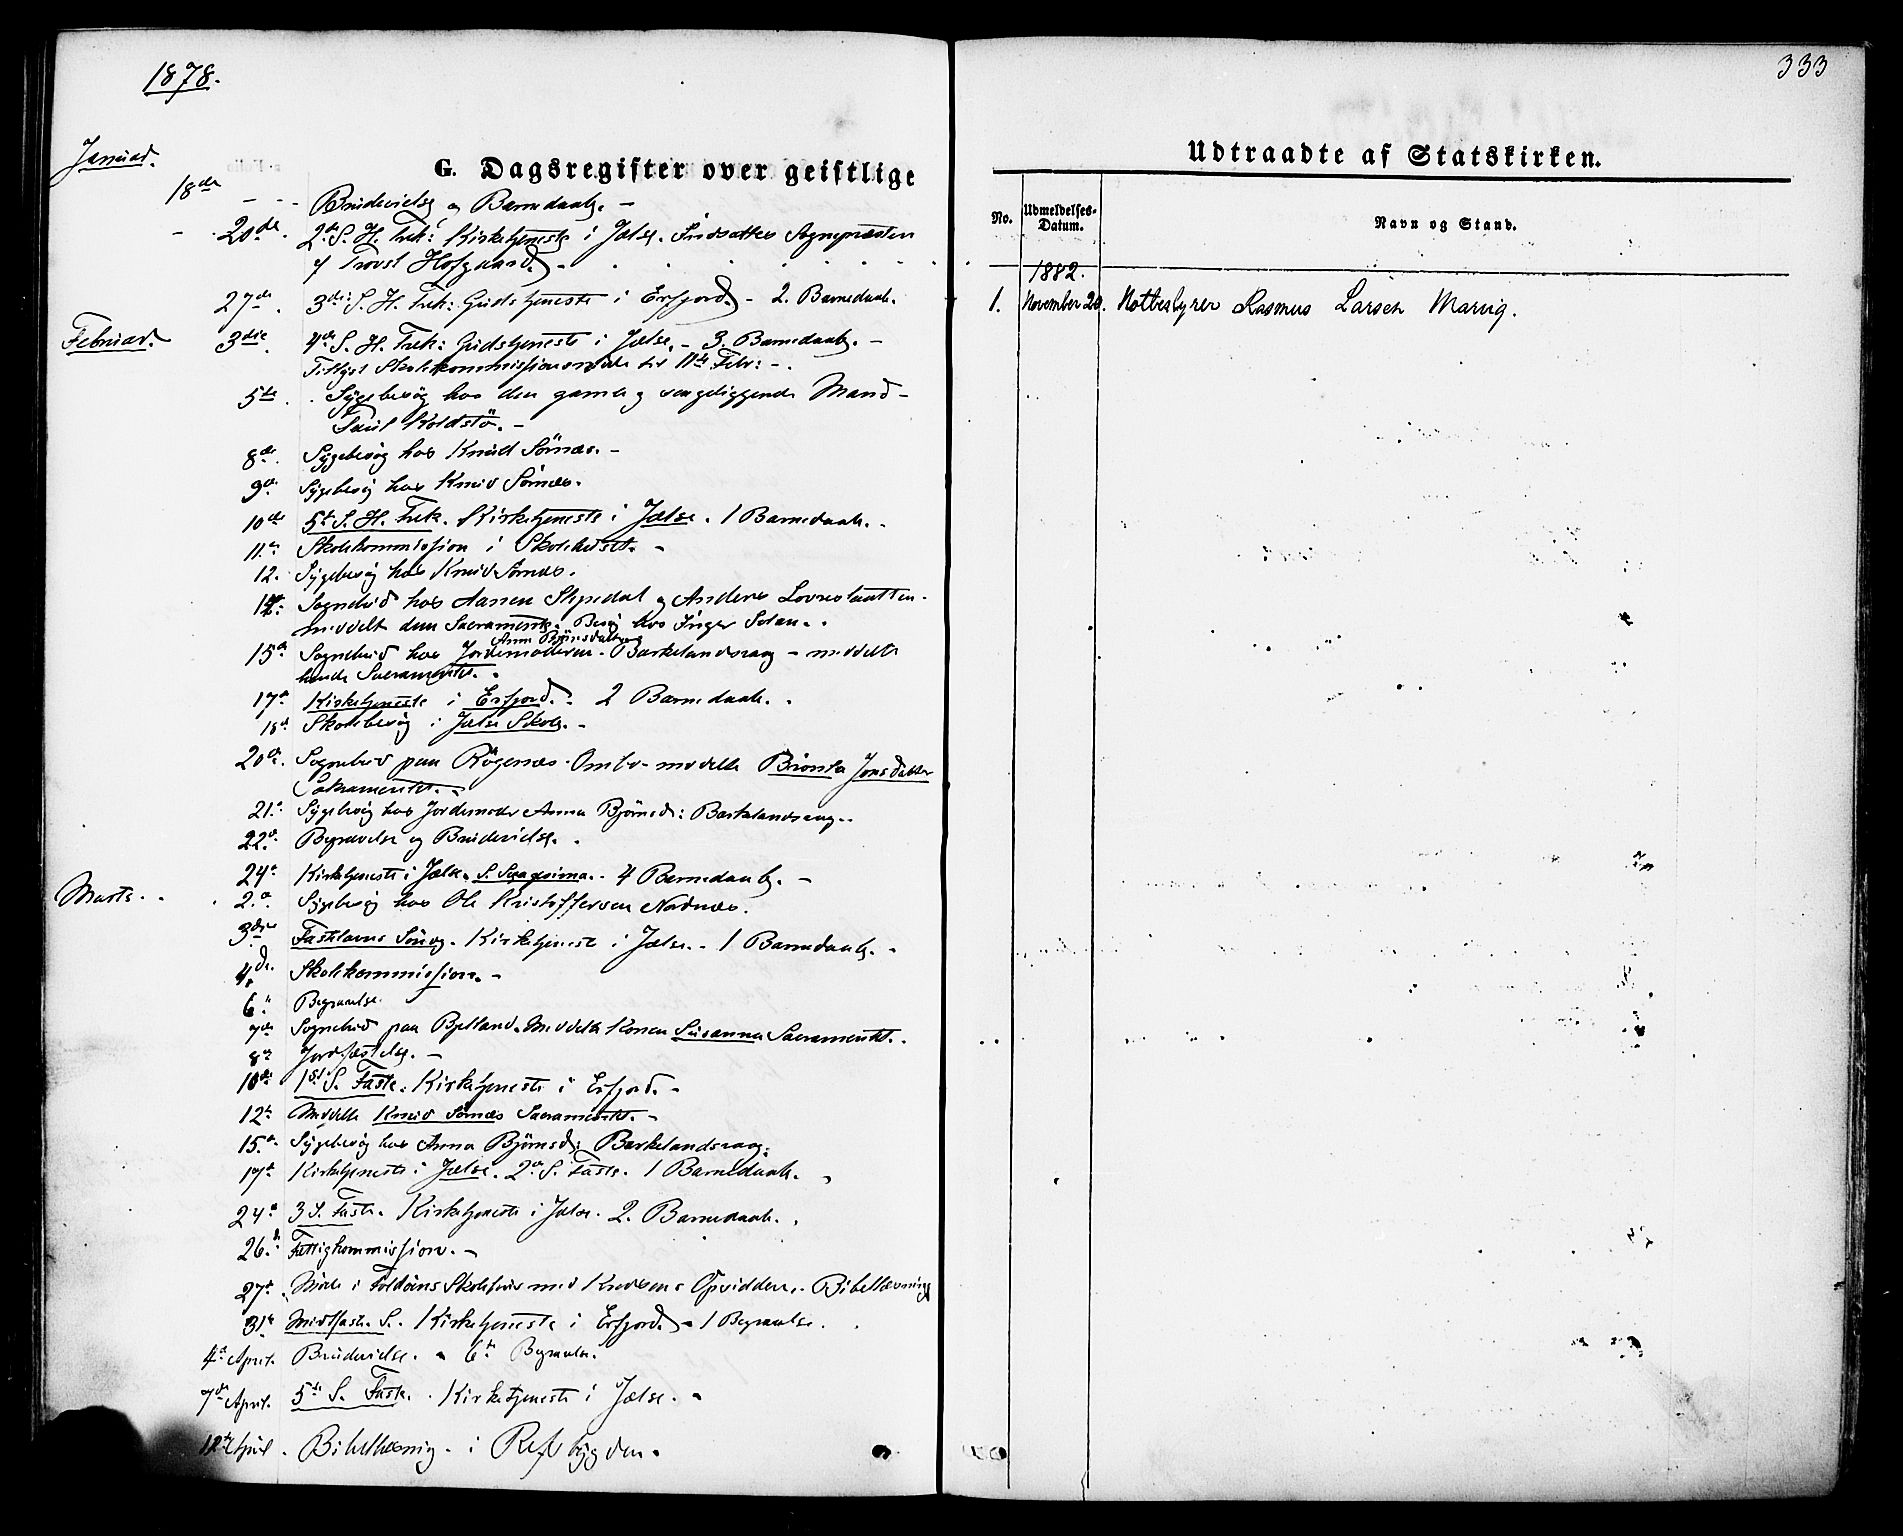 1878.
Januar.
G. Dagsregister over geistlige
18de - - Brudevielse og Barnedaab. -
20de. 2de S. H. Trek: Kirketjeneste i Jælse. Indsattes Sognepræsten
Provst Hofgaard. -
27de. 3die S. H. Trek: Gudstjeneste i Erfjord. - 2. Barnedaab.
Februar. 3die. 4de S. H. Trek: Gudstjeneste i Jelse. - 3. Barnedaab. -
Tillyst Skolekommissionsmøde til 11te Febr: -
5te. Sygebesøg hos den gamle og sengeliggende Mand -
Paul Koldstö. -
8de. Sygebesøg hos Knud Sörnæs. -
9de. Sygebesøg hos Knud Sörnæs.
10de 5te S. H. Trek. Kirketjeneste i Jelse. 1 Barnedaab. -
11te Skolekommission i Skolehuset. -
12. Sygebesøg hos Knud Sörnæs.
Sognebud hos Aanen Slyedal og Anders
meddelt dem Sacramentet. Besøg hos Inger
Anna Björnsdatter
15de Sognebud hos Jordemoderen Barkelandsvaag - meddelte
hende Sacramentet.
17de Kirketjeneste i Erfjord. 2 Barnedaab.
18de Skolebesøg i Jelse Skole. -
20de. Sognebud paa Rögenæs Ombo - meddelte Jonsdatter
Sakramentet.
21. Sygebesøg hos Jordemoder Anna Björnsd: Barkelandsvaag.
22de. Begravelse og Brudevielse.
24de Kirketjeneste i Jelse. S. Sexagesima. 4 Barnedaab. -
Marts. 2de Sygebesøg hos Ole Kristoffersen Nadnæs.
3die Fastelavns Söndag. Kirketjeneste i Jelse. - 1 Barnedaab. -
4de. Skolekommission. -
6te Begravelse.
7de Sognebud paa Bjelland. Meddelte Konen Susanna Sacramentet.
8de Jordfæstelse. -
10de 1ste S. Faste. Kirketjeneste i Erfjord. -
12te Meddelte Knud Sörnæs Sacramentet. -
15de Sygebesøg hos Anna Björnsd: Barkelandsvaag.
17de Kirketjeneste i Jelse. 2de S. Faste. 1 Barnedaab.
24de 3 S. Faste. Kirketjeneste i Jelse. 2. Barnedaab.
26de Fattigkommission. -
27de Møde i Foldöens Skolehus med Kredsens Opsidden. Bibellæsning
31te Midfaste S. Kirketjeneste i Erfjord. - 1 Begravelse.
4de April. Brudevielse. 6te Begravelse.
7de April. 5te S. Faste. Kirketjeneste i Jælse. -
12te April. Bibellæsning. i
333
Udtraadte af Statskirken.
No. Udmeldelses-Datum. Navn og Stand.
1882.
1. November 20. Notbestyrer Rasmus Larsen Marvig.